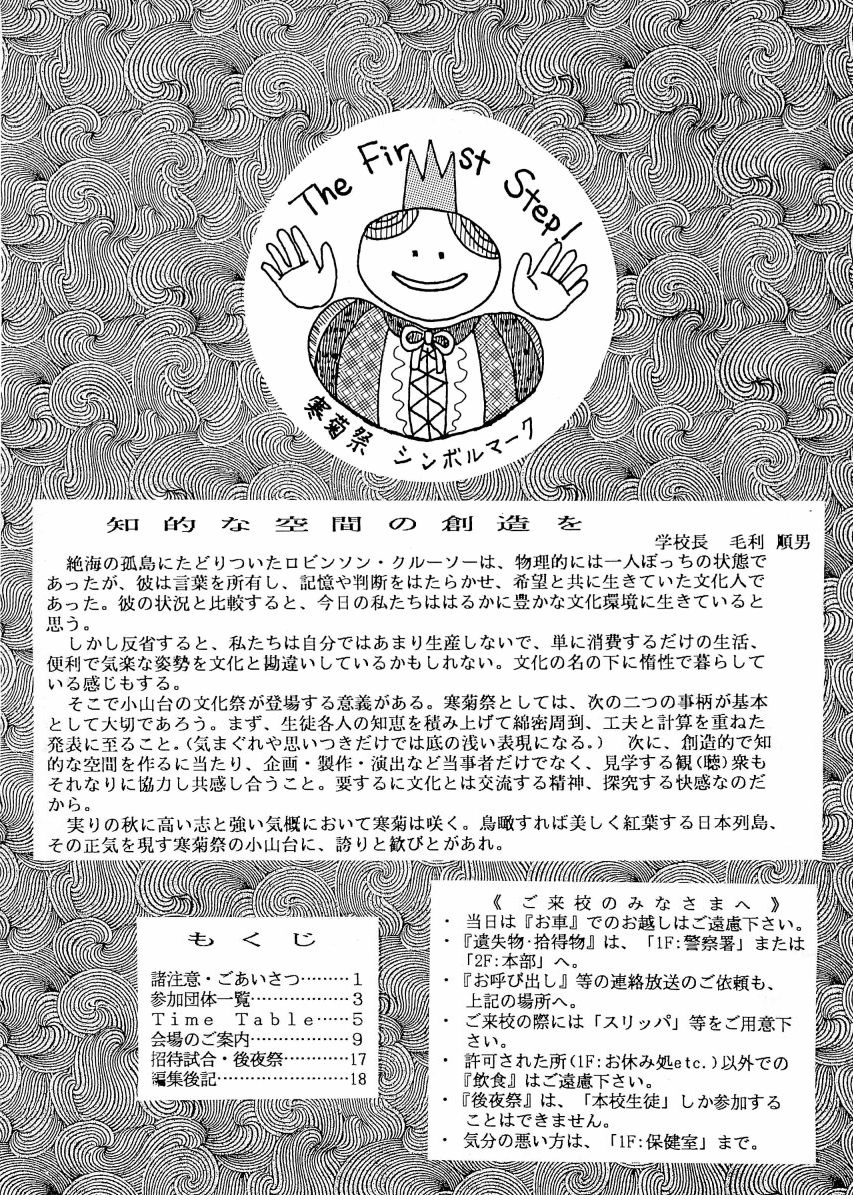 The First Step!
寒菊祭 シンボルマーク
知的な空間の創造を
学校長 毛利 順男
絶海の孤島にたどりついたロビンソン・クルーソーは、物理的には一人ぼっちの状態で
あったが、彼は言葉を所有し、記憶や判断をはたらかせ、希望と共に生きていた文化人で
あった。彼の状況と比較すると、今日の私たちははるかに豊かな文化環境に生きていると
思う。
しかし反省すると、私たちは自分ではあまり生産しないで、単に消費するだけの生活、
便利で気楽な姿勢を文化と勘違いしているかもしれない。文化の名の下に惰性で暮らして
いる感じもする。
そこで小山台の文化祭が登場する意義がある。寒菊祭としては、次の二つの事柄が基本
として大切であろう。まず、生徒各人の知恵を積み上げて綿密周到、工夫と計算を重ねた
発表に至ること。(気まぐれや思いつきだけでは底の浅い表現になる。) 次に、創造的で知
的な空間を作るに当たり、企画・製作・演出など当事者だけでなく、見学する観(聴)衆も
それなりに協力し共感し合うこと。要するに文化とは交流する精神、探究する快感なのだ
から。
実りの秋に高い志と強い気慨において寒菊は咲く。鳥瞰すれば美しく紅葉する日本列島、
その正気を現す寒菊祭の小山台に、誇りと歓びとがあれ。
もくじ
諸注意・ごあいさつ………1
参加団体一覧………………3
Time Table……5
会場のご案内………………9
招待試合・後夜祭…………17
編集後記……………………18
《 ご来校のみなさまへ 》
・ 当日は『お車』でのお越しはご遠慮下さい。
・『遺失物・拾得物』は、「1F:警察署」または
「2F:本部」へ。
・『お呼び出し』等の連絡放送のご依頼も、
上記の場所へ。
・ ご来校の際には「スリッパ」等をご用意下
さい。
・ 許可された所(1F:お休み処etc.)以外での
『飲食』はご遠慮下さい。
・『後夜祭』は、「本校生徒」しか参加する
ことはできません。
・ 気分の悪い方は、「1F:保健室」まで。